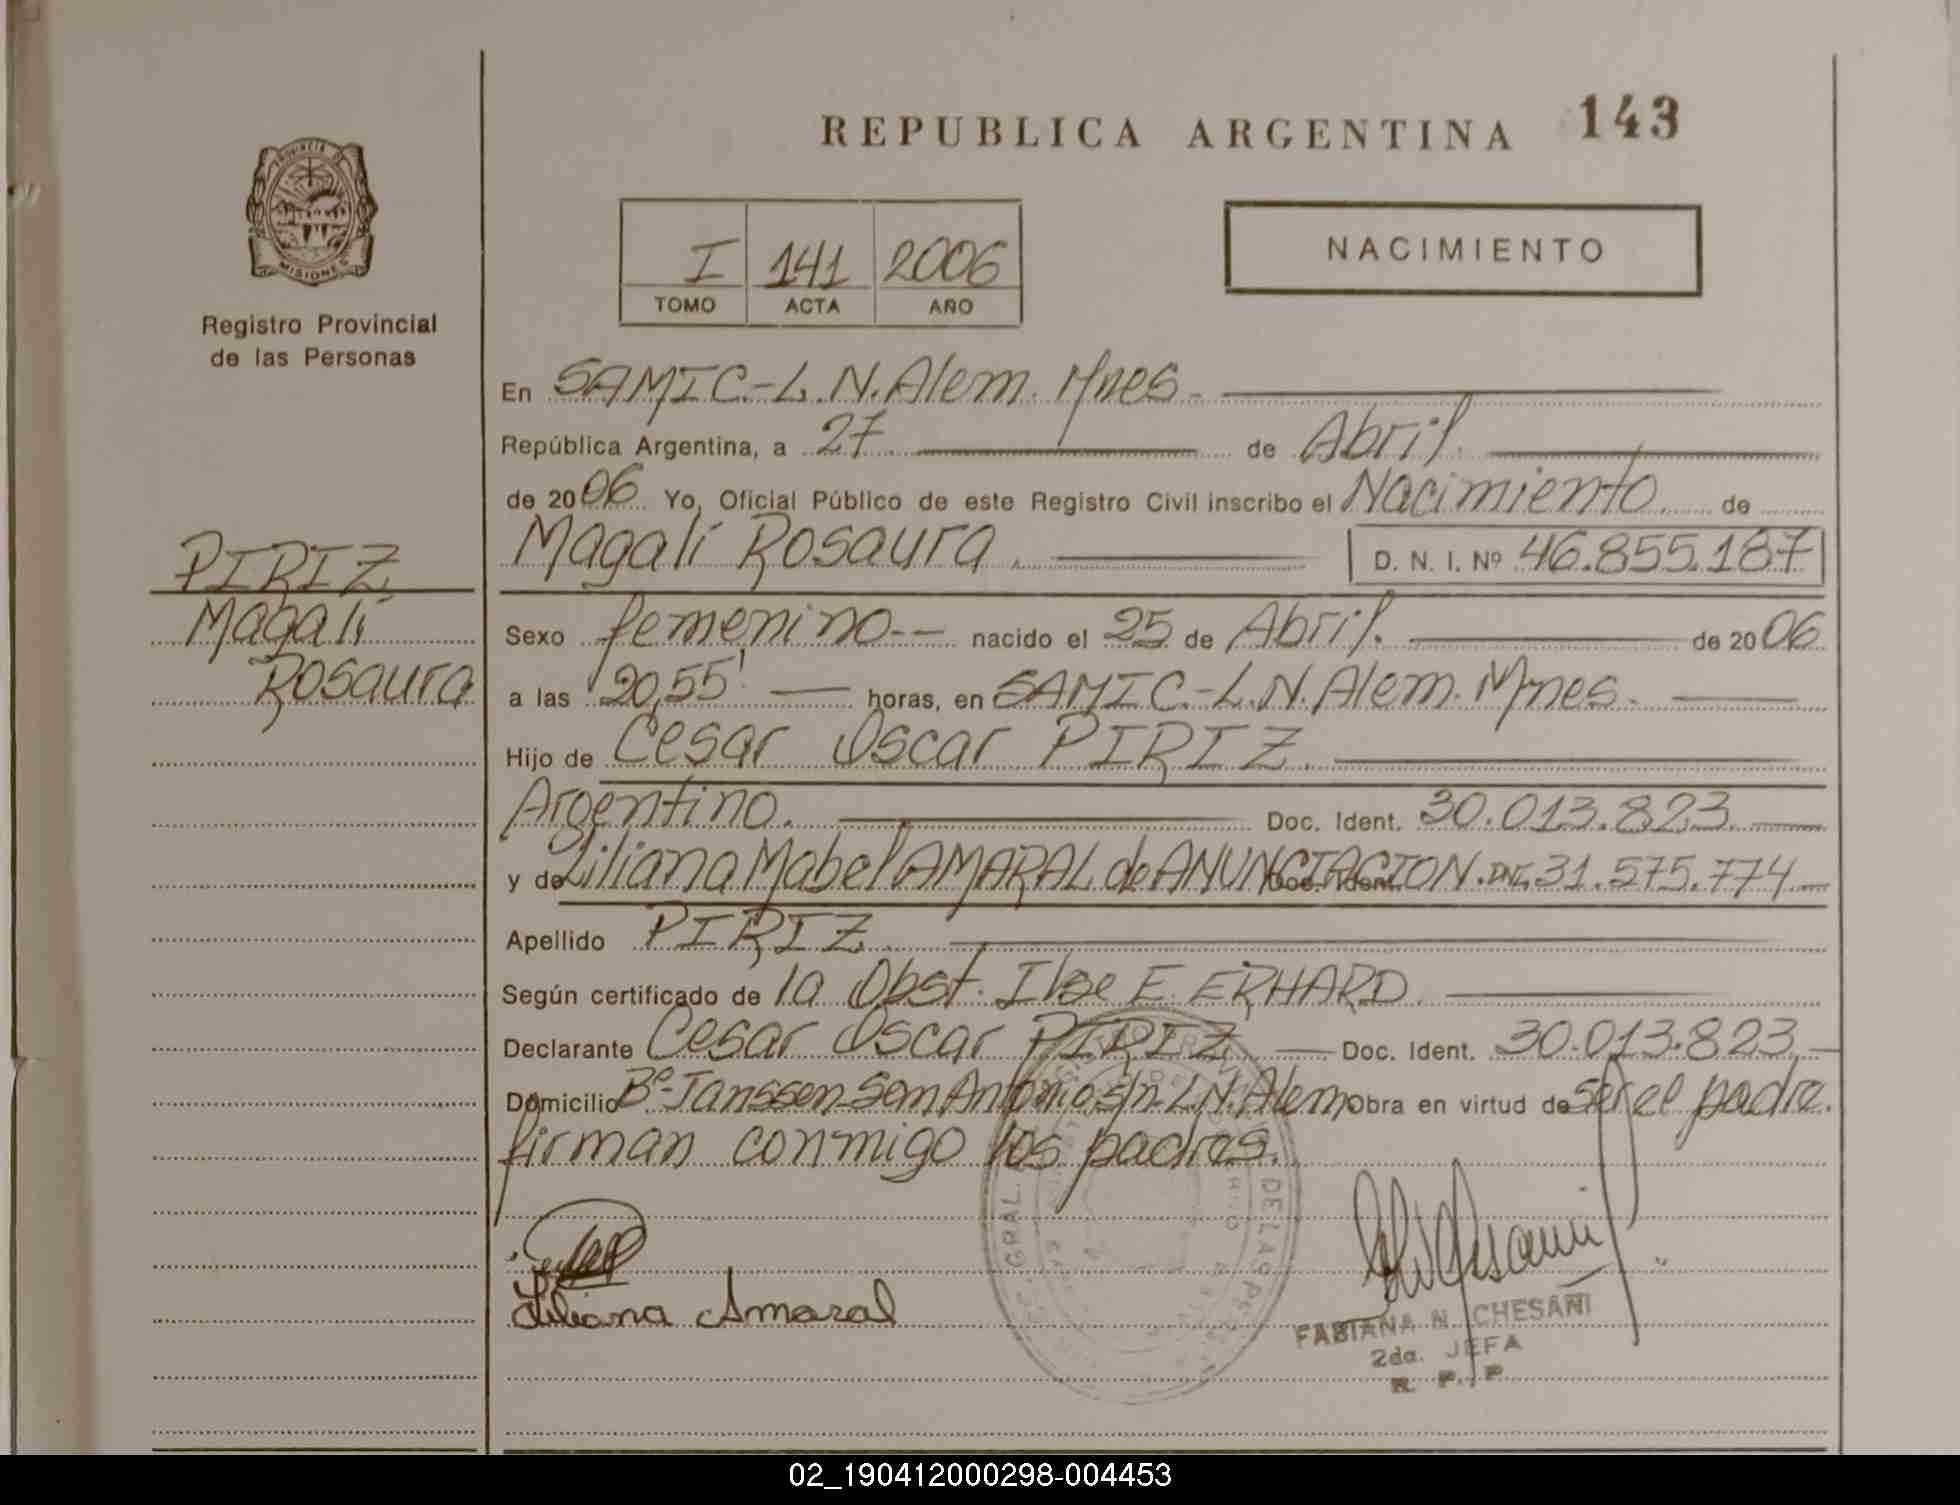 REPUBLICA ARGENTINA 143
PROVINCIA DE
MISIONES
Registro Provincial
de las Personas
I 141 2006
TOMO ACTA AÑO
NACIMIENTO
En SAMIC.-L.N.Alem. Mnes.
República Argentina, a 27 de Abril.
de 2006 Yo, Oficial Público de este Registro Civil inscribo el Nacimiento de
Magalí Rosaura. D. N. I. Nº 46.855.187
PIRIZ
Magalí
Rosaura
Sexo femenino-- nacido el 25 de Abril. de 2006
a las 20,55' horas, en SAMIC.-L.N.Alem. Mnes.
Hijo de Cesar Oscar PIRIZ.
Argentino. Doc. Ident. 30.013.823
y de Liliana Mabel AMARAL de ANUNCIACION. DNI. 31.575.774
Apellido PIRIZ.
Según certificado de la Obst. Ilse E. ERHARD
Declarante Cesar Oscar PIRIZ Doc. Ident. 30.013.823
Domicilio Bº-Janssen San Antonio s/n-L.N.Alem Obra en virtud de ser el padre.
firman conmigo los padres.
Liliana Amaral
FABIANA N. CHESANI
2da. JEFA
R. P. P
02_190412000298-004453